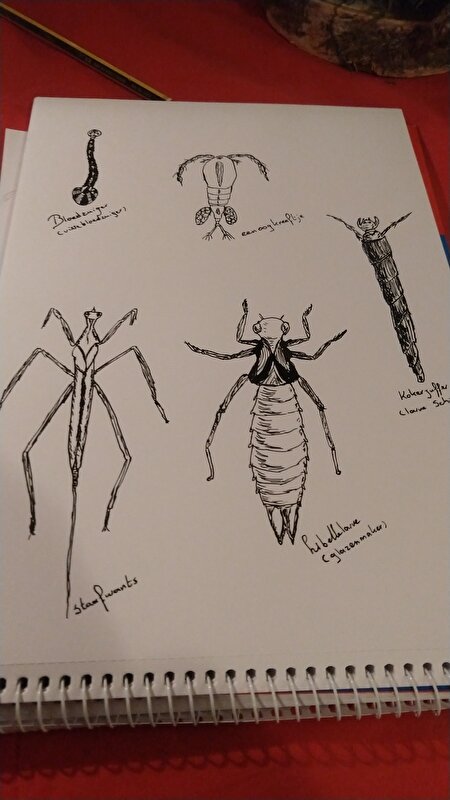 Bloedzuiger
(visbloedzuiger)
eenoogkreeftje
Kokerjuffer
(larve
libellelarve
(glazenmaker)
staafwants